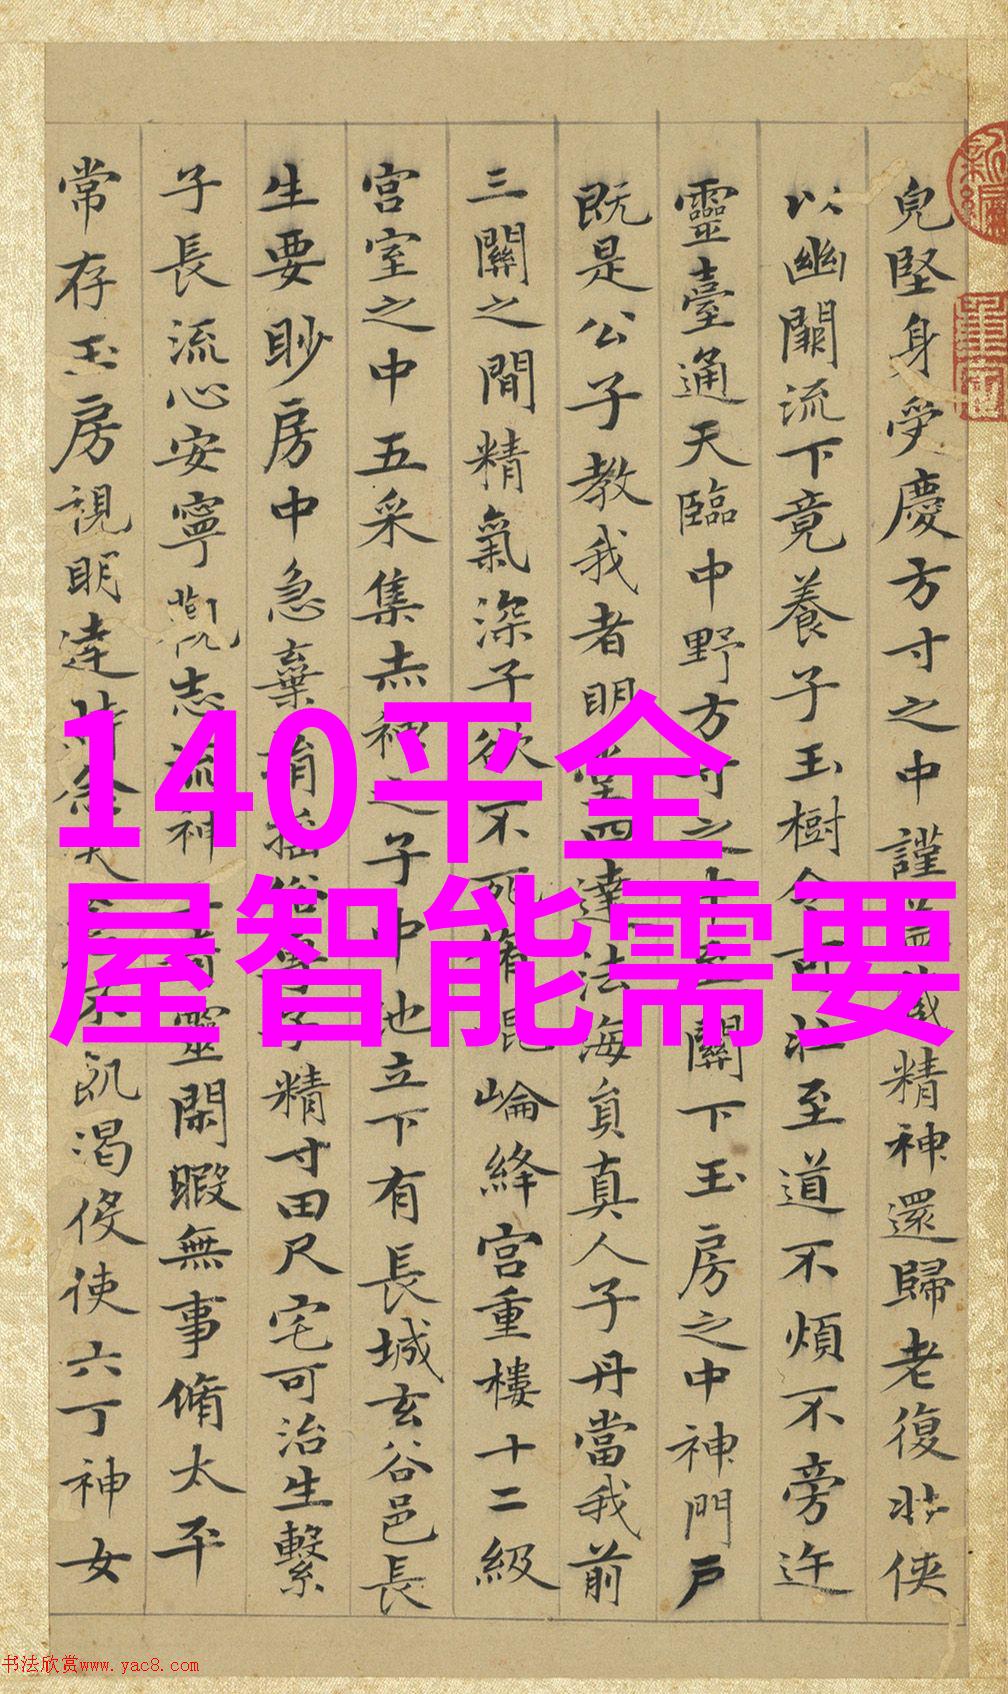 皃堅身受慶方寸之中謹蓋藏精神還歸老復壯俠
以幽闕流下竟養子玉樹令可壯至道不煩不旁迕
靈臺通天臨中野方寸之中至關下玉房之中神門戶
既是公子教我者明堂四達法海員真人子丹當我前
三關之間精氣深子欲不死脩崑崙絳宮重樓十二級
宮室之中五采集赤神之子中池立下有長城玄谷邑長
生要眇房中急棄捐搖俗專子精寸田尺宅可治生繫
子長流心安寧志流神靈閑暇無事脩太平
常存玉房視明達時念大不飢渴役使六丁神女
140平全
屋智能需要
书法欣赏www.yac8.com